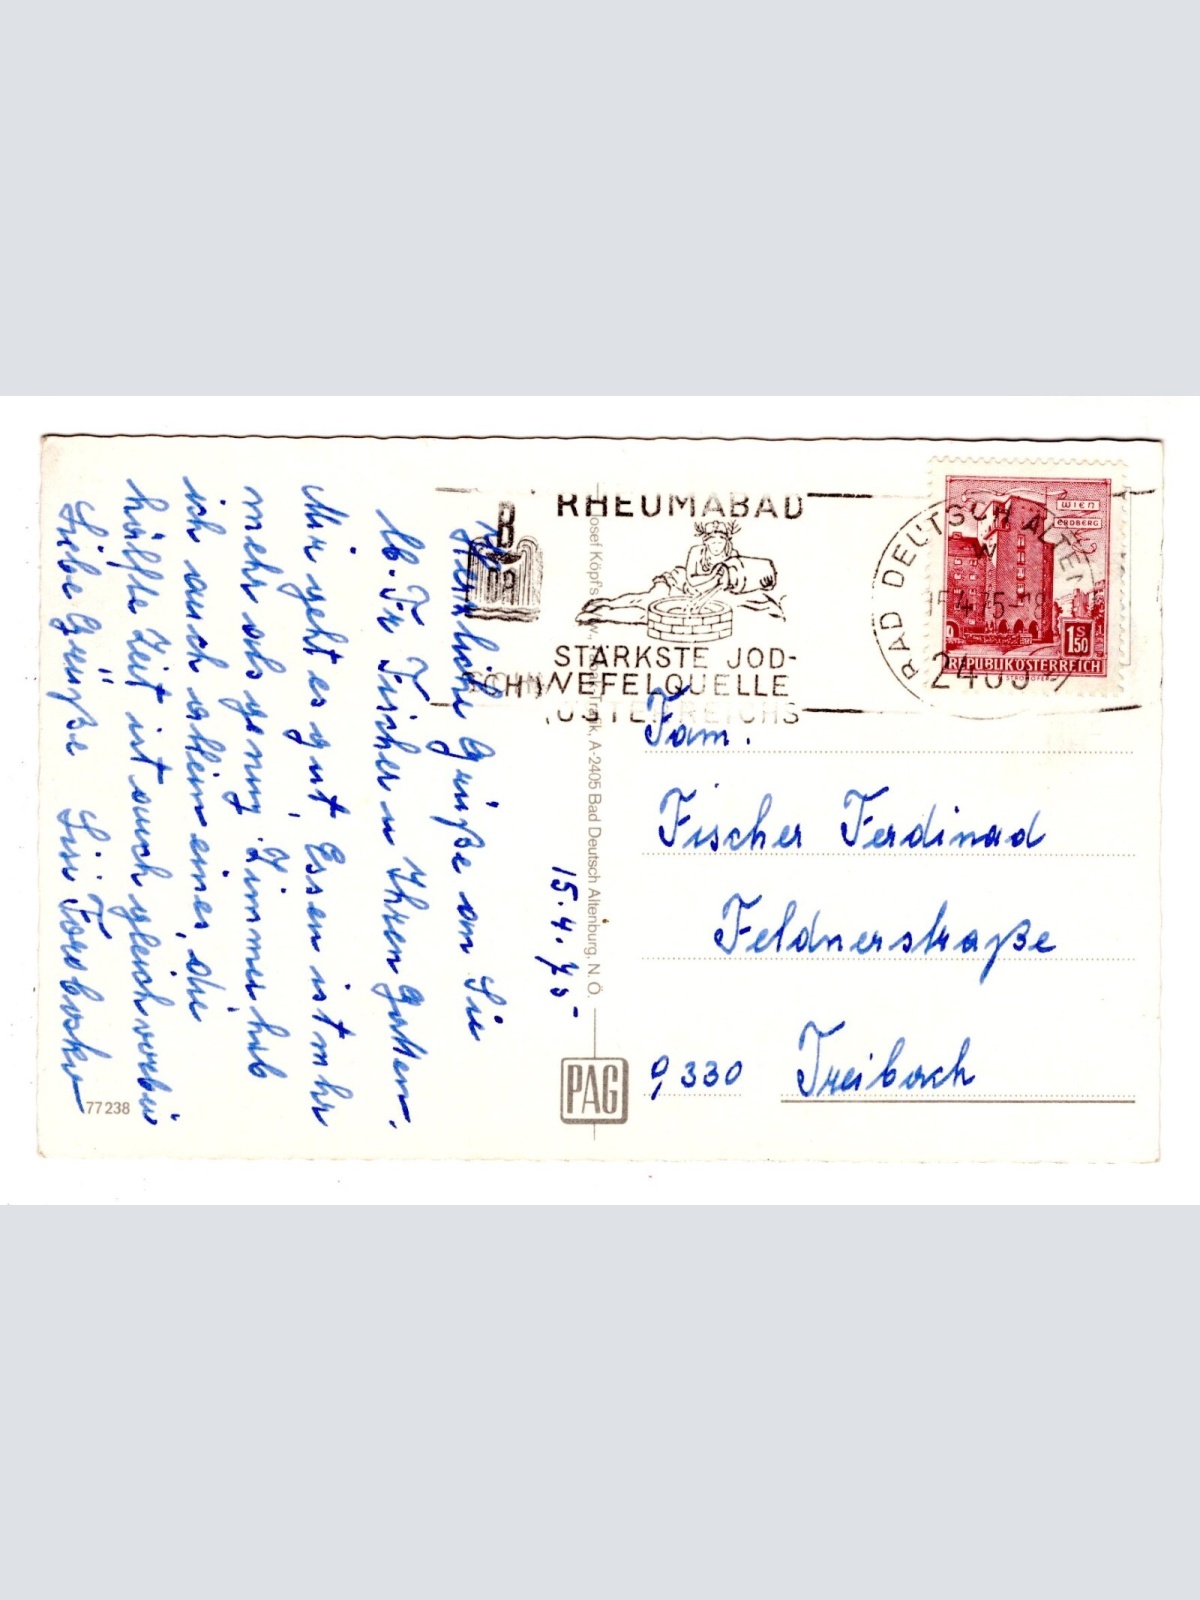 RHEUMABAD
B
DA
STÄRKSTE JOD-
SCHWEFELQUELLE
ÖSTERREICHS
BAD DEUTSCH ALTEN
W
15.4.75-18
2405
WIEN
ERDBERG
1 S 50
REPUBLIK ÖSTERREICH
15.4.75-
Herzliche Grüße an Sie
lb. Fr Fischer u Ihren Gatten.
Mir geht es gut, Essen ist mhr
mehr als genug, Zimmer hab
ich auch allein eines, die
hälfte Zeit ist auch gleich vorbei
Liebe Grüße
Josef Köpf's Ww., Trafik, A-2405 Bad Deutsch Altenburg, N.Ö.
Fam.
Fischer Ferdinad
Feldnerstraße
9330 Treibach
PAG
77238